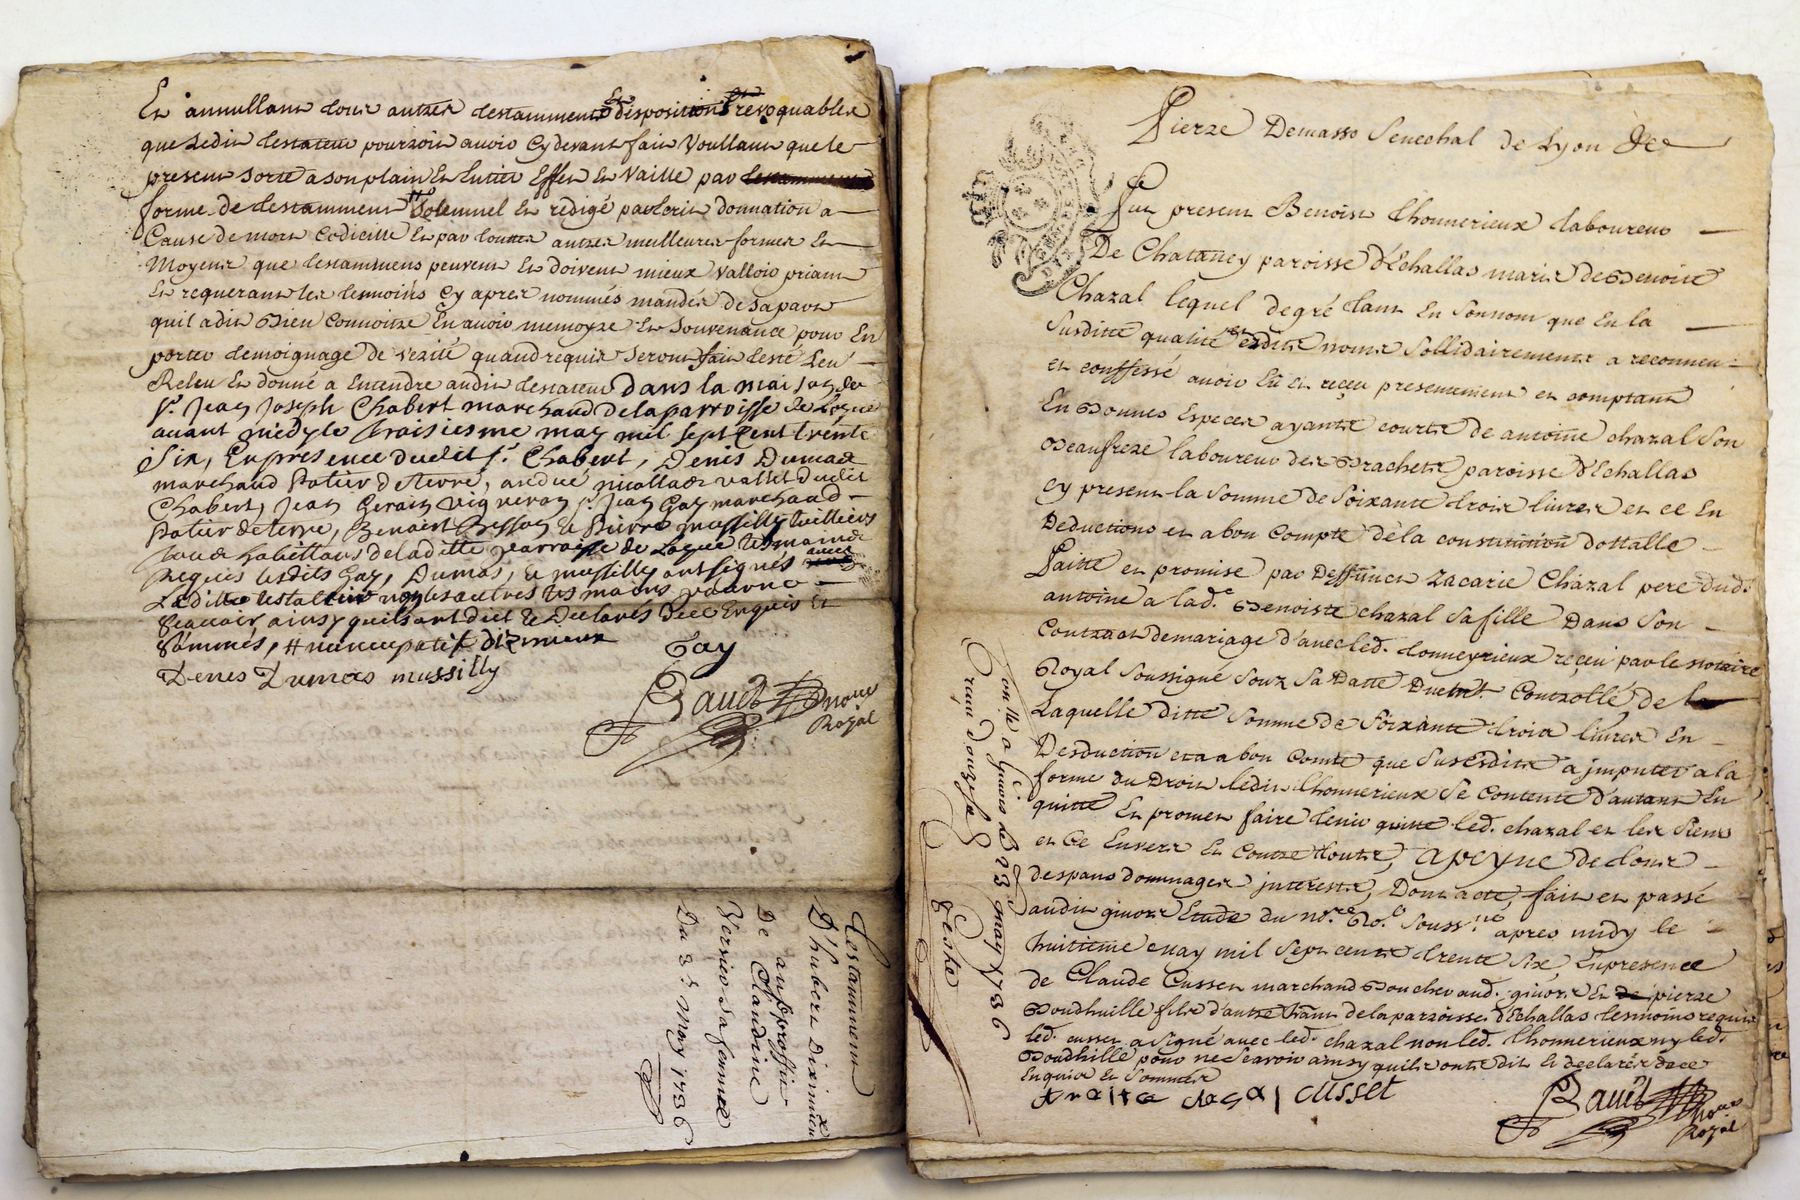 Et annullant tous autres testaments et dispositions revoquables
que ledit testateur pourroit avoir cy devant fait Voullant que le
present sorte a son plain Et Entier Effet Et Vaille par
forme de testamment # Solemnel Et redigé par Ecrit donnation a
Cause de mort Codicille Et par touttes autres meilleures formes Et
Moyens que testammens peuvent Et doivent mieux Valloir priant
Et requerant les tesmoins Cy apres nommés mandés de sa part
quil a dit Bien Connoitre En avoir memoyre Et Souvenance pour En
porter temoignage de verité quand requis seront fait Testé Leu
Releu Et donné a Entendre audit testateur dans la maison du
Sr. Jean Joseph Chabert marchand de la parroisse de
avant midy le troisiesme may mil sept cent trente
Six, En presence dudit Sr. Chabert, Denis Dumas
marchand Potier de Terre, andré vallet dudit
Chabert, Jean vigneron Sr. Jean Gay marchand
Potier de terre, Benoist & Pierre mussilly tuilliers
tous habittans de laditte parroisse de tesmoins
requis lesdits Gay, Dumas, & mussilly ont signés avec
Ledit testateur non les autres tesmoins pour ne
Scavoir ainsy quils ont dict & Declarés De ce Enquis Et
Sommés, # nuncupatif diximieux
Denes Dumas mussilly
Gay
Baud nore
Royal
testamment
D'hubert Diximieux
au proffit
De Claudine
Versier sa femme
Du 3e. May 1736
Pierre Demasso Senechal de Lyon &c
Fut present Benoist thonnerieux laboureur
De Chataney paroisse d'Echallas marit de Benoite
Chazal lequel de gré tant En son nom que En la
Susditte qualité et esdits noms Sollidairement a reconneu
et conffessé avoir Eü et reçeu presentement et comptant
En Bonnes Especes ayants courts de antoine chazal Son
Beaufreze laboureur des Brachets paroisse d'Echallas
cy present la Somme de Soixante trois livres et ce En
Deductions et a bon Compte de la constitution dottalle
Faitte et promise par Deffunct Zacarie Chazal pere dud.
antoine a lade. Benoiste chazal Sa fille Dans Son
Contract de mariage d'avec led. tonneyrieux reçeu par le notaire
Royal Soussigné Souz Sa Datte Duëmt. Controllé de
Laquelle ditte Somme de Soixante trois livres En
Desduction et a bon Comte que Susesdits a jmputer a la
forme du Droit ledit thonnerieux Se Contente d'autant En
quitte Et promet faire tenir quitte led. chazal et les Siens
et Ce Envers Et Contre touts, a peyne de tous
despans dommages jnterests, Dont acte, fait et passé
audit givors Etude du nore. Ro. Souss.né apres midy le
huitieme may mil Sept cents trente Six, En presence
de Claude Cusset marchand Boucher aud. givors et pierre
Boudhuille fils d'autre de la parroisse d'Echallas tesmoins requis
led. cusset a Signé avec led. chazal non led. thonnerieux ny led.
Boudhille pour ne Scavoir ainsy quils onts dit Et declarés de ce
Enquis Et Sommés
Antoine chazal cusset
Baud nore
Royal
Conlle a Givors le 23 may 1736
Reçu douze s.
Teste